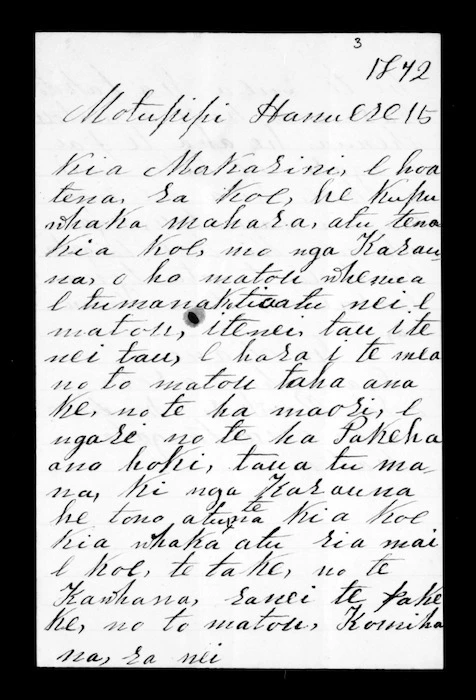 3
1872
Motupipi Hanuere 15
Kia Makarini, e hoa
tena, ra koe, he kupu
whaka mahara, atu tena
kia koe, mo nga Karau
na, o ho matou whenua
e tumanakotia atu nei e
matou, i tenei, tau i te
nei tau, e hara i te mea
no to matou taha ana
ke, no te ha maori, e
ngari no te ha Pakeha
ano hoki, taua tu ma
na, ki nga Karauna
he tono atu, tenа kia koe
kia whaka atu ria mai
e koe, te take, no te
Kawhana, ranei te pake
ke, no to matou, Komiha
na, ra nei